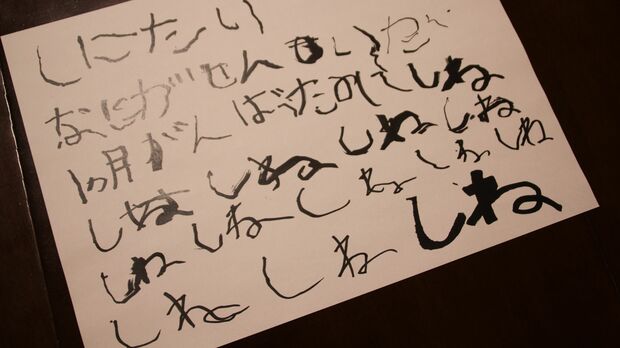 しにたい
なにがせんもいだ
1ヵ月がんばったのにしね
しぬ しね しね しね
しね しね しね しね しね
しね しね しね